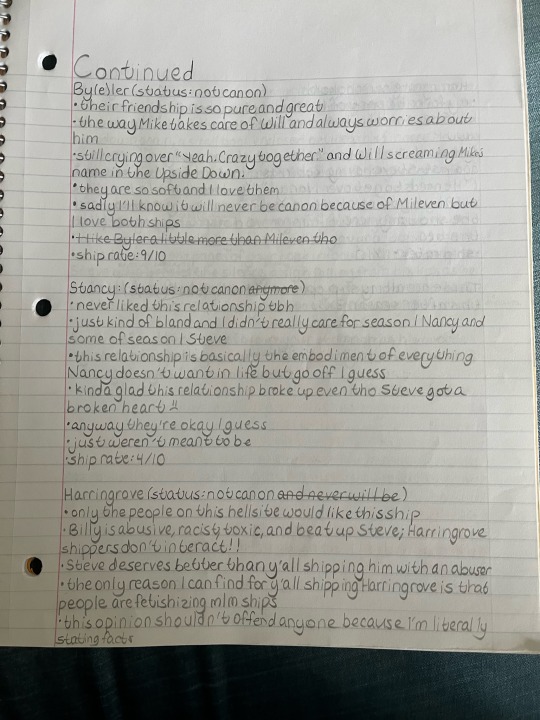 Continued
By(e)ler (status: not canon)
• their friendship is so pure and great
• the way Mike takes care of Will and always worries about
him
• still crying over "Yeah. Crazy together" and Will screaming Mike's
name in the Upside Down.
• they are so soft and I love them
• sadly I'll know it will never be canon because of Mileven but
I love both ships
• I like Byler a little more than Mileven tho
• ship rate: 9/10
Stancy: (status: not canon anymore)
• never liked this relationship tbh
• just kind of bland and I didn't really care for season 1 Nancy and
some of season 1 Steve
• this relationship is basically the embodiment of everything
Nancy doesn't want in life but go off I guess
• kinda glad this relationship broke up even tho Steve got a
broken heart
• anyway they're okay I guess
• just weren't meant to be
• ship rate: 4/10
Harringrove (status: not canon and never will be)
• only the people on this hellsite would like this ship
• Billy is abusive, racist, toxic, and beat up Steve; Harringrove
shippers don't interact!!
• Steve deserves better than y'all shipping him with an abuser
• the only reason I can find for y'all shipping Harringrove is that
people are fetishizing mlm ships
• this opinion shouldn't offend anyone because I'm literally
stating facts